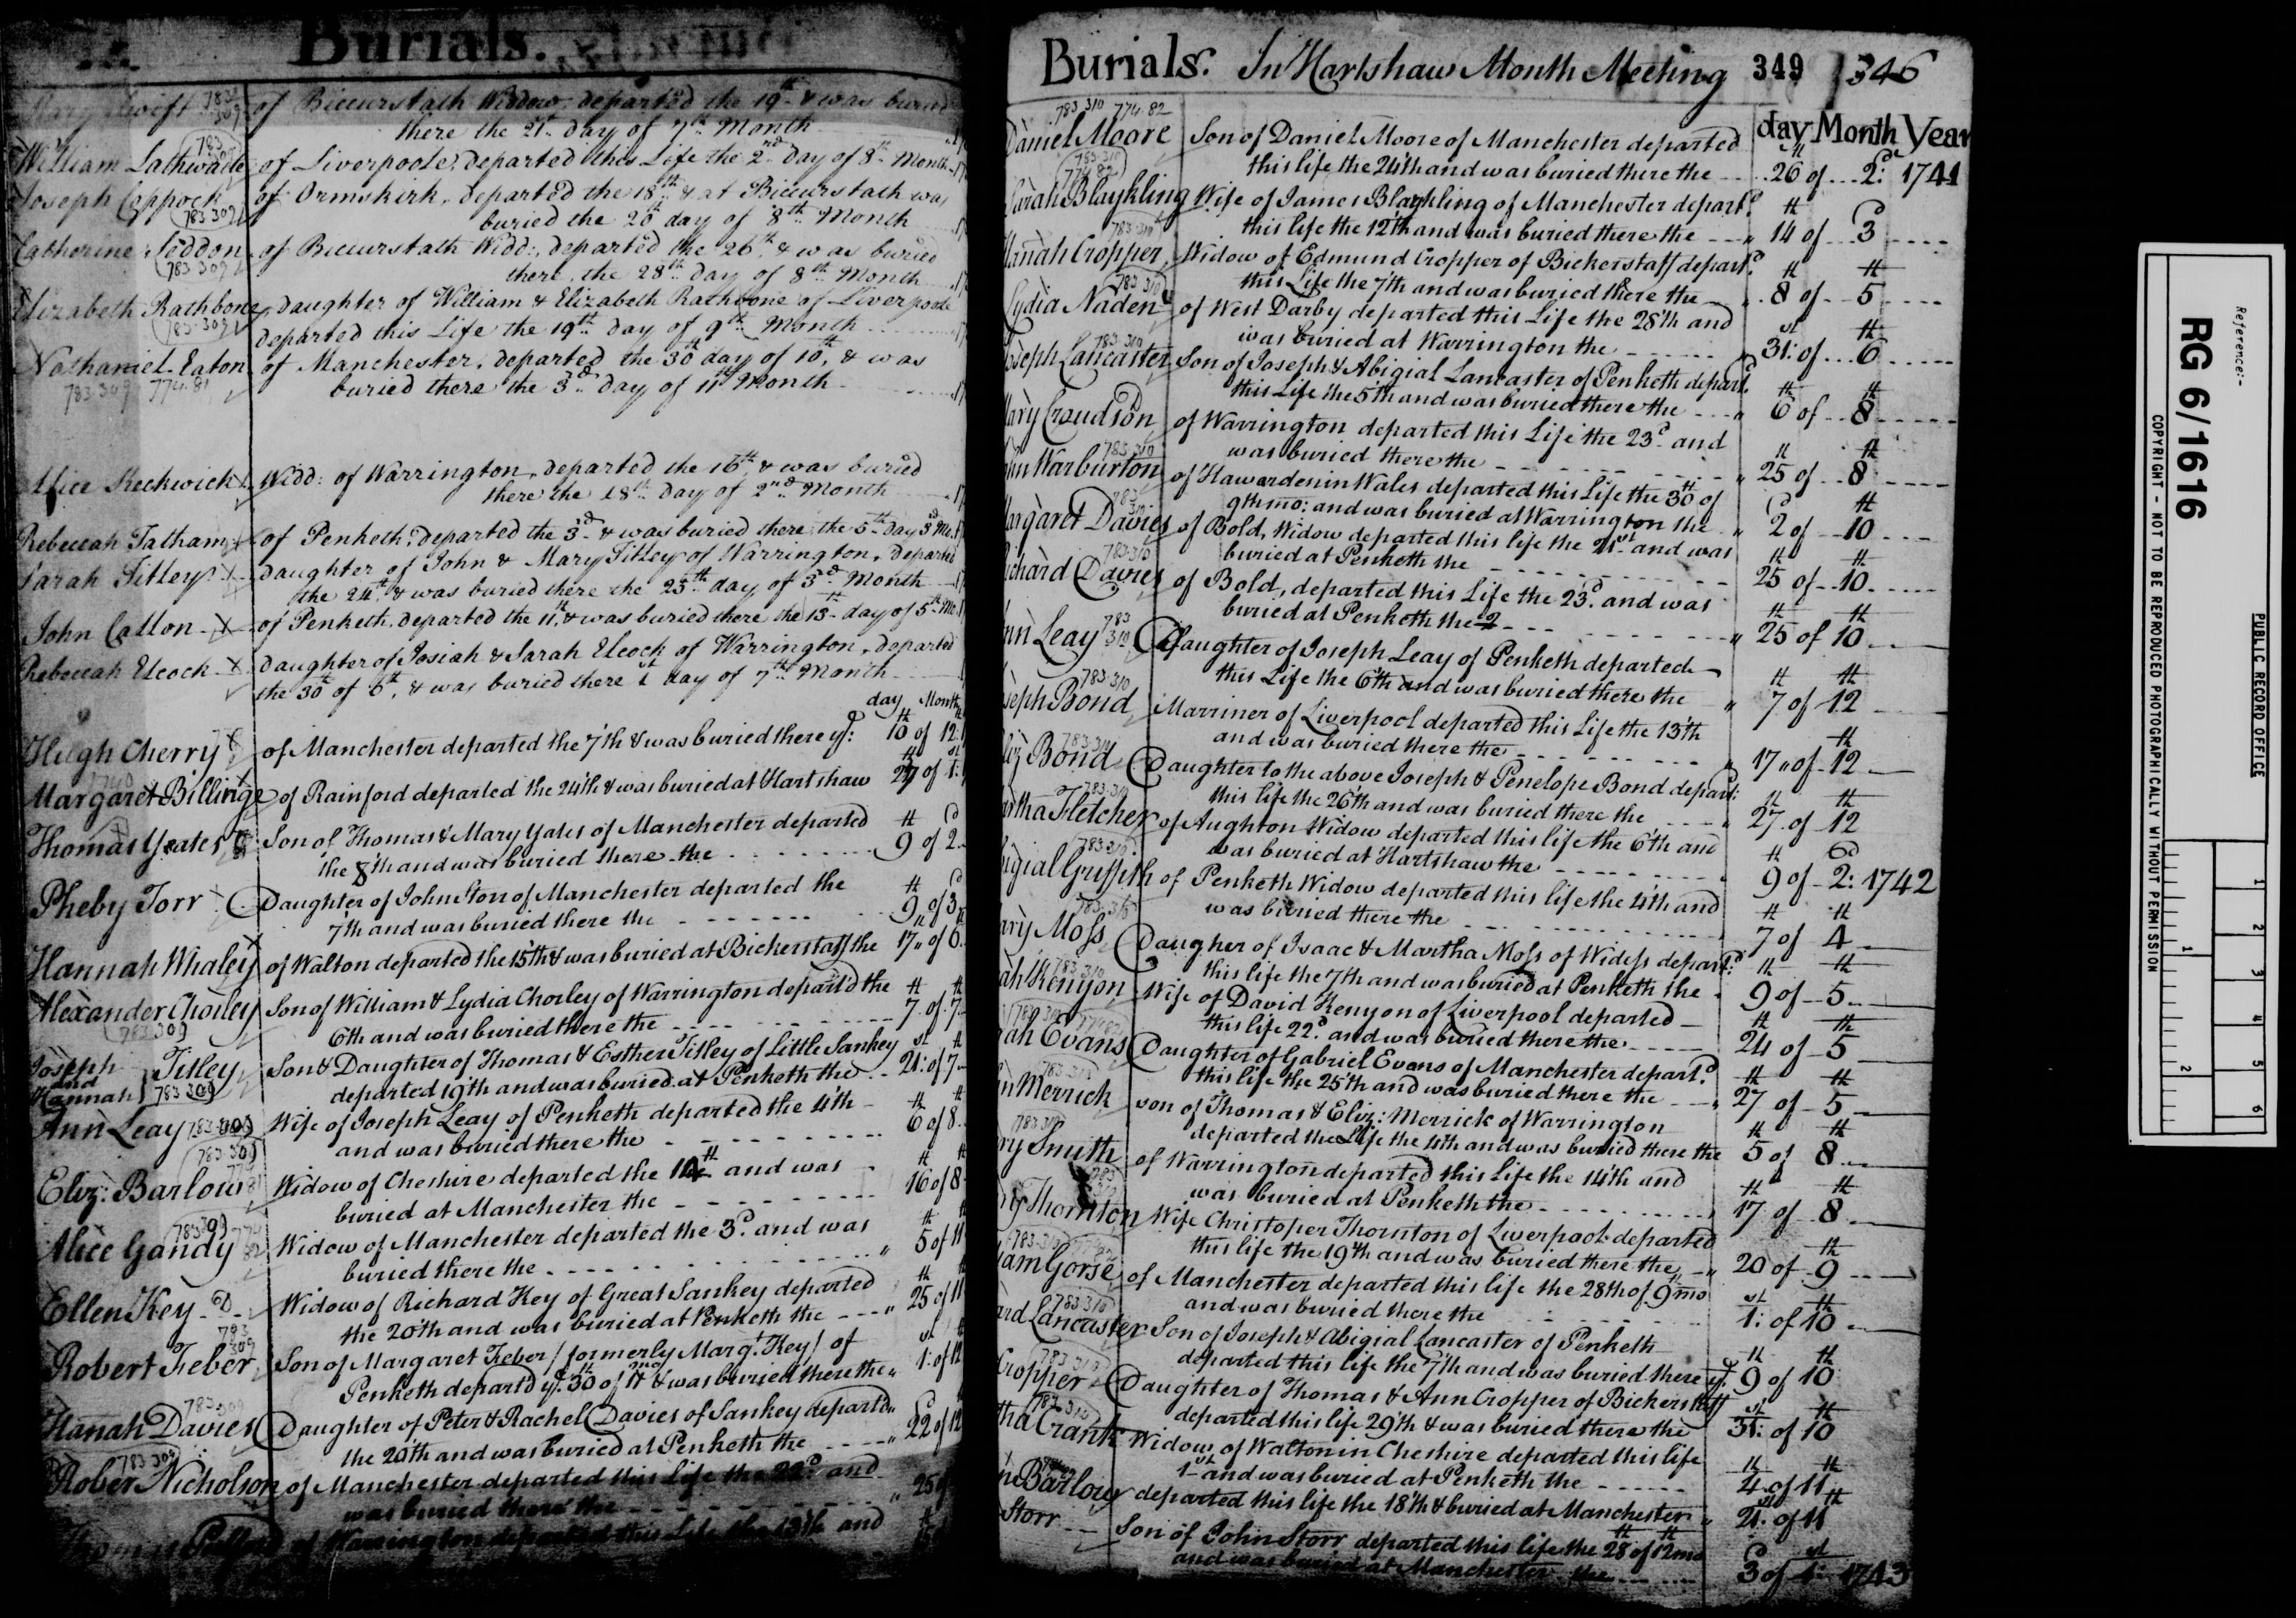 Burials.
Mary Swift of Bickurstath Widdow, departed the 19th & was buried
there the 21st day of 7th Month
William Lathwaite of Liverpoole, departed this Life the 2nd day of 8th Month
Joseph Coppock of Ormskirk, departed the 18th & at Bickurstath was
783 309 buried the 20th day of 8th Month
Catherine Seddon of Bickurstath Widd:, departed the 26th & was buried
783 309 there the 28th day of 8th Month
Elizabeth Rathbone, daughter of William & Elizabeth Rathbone of Liverpoole
783 309 departed this Life the 19th day of 9th Month
Nathaniel Eaton of Manchester, departed the 30th day of 10th, & was
783 309 774 81 buried there the 3d day of 11th Month
Alice Keckwick Widd: of Warrington, departed the 16th & was buried
there the 18th day of 2nd Month
Rebeccah Tatham of Penketh, departed the 3d & was buried there the 5th day 3d Mo.
Sarah Titley daughter of John & Mary Titley of Warrington, departed
the 24th & was buried there the 25th day of 3d Month
John Callon of Penketh, departed the 11th & was buried there the 13th day of 5th Mo.
Rebeccah Elcock daughter of Josiah & Sarah Elcock of Warrington, departed
the 30th of 6th, & was buried there 1st day of 7th Month
day Month
Hugh Cherry of Manchester departed the 7th & was buried there ye: 10th of 12
Margaret Billinge of Rainford departed the 24th & was buried at Hartshaw 27th of 1st
Thomas Yeates Son of Thomas & Mary Yates of Manchester departed
the 8th and was buried there the 9th of 2d
Pheby Torr Daughter of John Ston of Manchester departed the
7th and was buried there the 9th of 3d
Hannah Whaley of Walton departed the 15th & was buried at Bickerstaff the 17 of 6
Alexander Chorley Son of William & Lydia Chorley of Warrington depart'd the
783 309 6th and was buried there the 7th of 7th
Joseph and Hannah Titley Son & Daughter of Thomas & Esther Titley of Little Sankey
783 309 departed 19th and was buried at Penketh the 21st of 7th
Ann Leay 783 309 Wife of Joseph Leay of Penketh departed the 4th
and was buried there the 6th of 8th
Eliz: Barlow Widow of Cheshire departed the 14th and was
buried at Manchester the 16th of 8th
Alice Gandy Widow of Manchester departed the 3d and was
buried there the 5th of 11
Ellen Key Widow of Richard Key of Great Sankey departed
the 20th and was buried at Penketh the 25th of 11
Robert Feber Son of Margaret Feber / formerly Margt. Key / of
Penketh depart'd ye. 30th of 11mo & was buried there the 1st of 12
Hanah Davies Daughter of Peter & Rachel Davies of Sankey depart'd
the 20th and was buried at Penketh the 22d of 12
Rober Nicholson of Manchester departed this Life the 22d and
was buried there the 25
Thomas of Warrington departed this Life the 13th and 15
Burials. In Hartshaw Month Meeting 349 346
783 310 774 82 day Month Year
Daniel Moore Son of Daniel Moore of Manchester departed
this life the 24th and was buried there the 26th of 2d: 1741
Sarah Blaykling Wife of James Blaykling of Manchester depart'd
this life the 12th and was buried there the 14th of 3d
Hanah Cropper, Widow of Edmund Cropper of Bickerstaff depart'd
this Life the 7th and was buried there the 8th of 5th
Lydia Naden of West Darby departed this Life the 28th and
was buried at Warrington the 31st of 6th
Joseph Lancaster Son of Joseph & Abigial Lancaster of Penketh depart'd
this Life the 5th and was buried there the 6th of 8th
Mary Croudson of Warrington departed this Life the 23d and
was buried there the 25th of 8th
John Warburton of Hawarden in Wales departed this Life the 30th of
9th mo: and was buried at Warrington the 2d of 10th
Margaret Davies of Bold, Widow departed this life the 21st and was
buried at Penketh the 25th of 10th
Richard Davies of Bold, departed this Life the 23d and was
buried at Penketh the 25th of 10th
Ann Leay 783 310 Daughter of Joseph Leay of Penketh departed
this Life the 6th and was buried there the 7th of 12th
Joseph Bond Marriner of Liverpool departed this Life the 13th
and was buried there the 17 of 12th
Eliz Bond Daughter to the above Joseph & Penelope Bond depart:
this life the 26th and was buried there the 27th of 12th
Martha Fletcher of Aughton Widow departed this life the 6th and
was buried at Hartshaw the 9th of 2d: 1742
Abigial Griffith of Penketh Widow departed this life the 4th and
was buried there the 7th of 4th
Mary Moss Daugher of Isaac & Martha Moss of Widess depart'd
this life the 7th and was buried at Penketh the 9th of 5th
ah Kenyon Wife of David Kenyon of Liverpool departed
this life 22d and was buried there the 24th of 5th
ah Evans Daughter of Gabriel Evans of Manchester depart'd
this life the 25th and was buried there the 27th of 5th
n Merrick son of Thomas & Eliz: Merrick of Warrington
departed the Life the 4th and was buried there the 5th of 8th
ry Smith of Warrington departed this Life the 14th and
was buried at Penketh the 17th of 8th
Thornton Wife Christoper Thornton of Liverpool departed
this life the 19th and was buried there the 20 of 9th
iam Gorse of Manchester departed this life the 28th of 9th mo
and was buried there the 1st: of 10th
ard Lancaster Son of Joseph & Abigial Lancaster of Penketh
departed this life the 7th and was buried there ye. 9th of 10th
Cropper Daughter of Thomas & Ann Cropper of Bickerstaff
departed this life 29th & was buried there the 31st: of 10th
tha Crank Widow of Walton in Cheshire departed this life
1st and was buried at Penketh the 4th of 11th
n Barlow departed this life the 18th & buried at Manchester 21st of 11th
Storr Son of John Storr departed this life the 28th of 12th mo
and was buried at Manchester the 3d of 1st: 1743
Reference:-
RG 6/1616
PUBLIC RECORD OFFICE
COPYRIGHT - NOT TO BE REPRODUCED PHOTOGRAPHICALLY WITHOUT PERMISSION
1 2 3 4 5 6
1 2